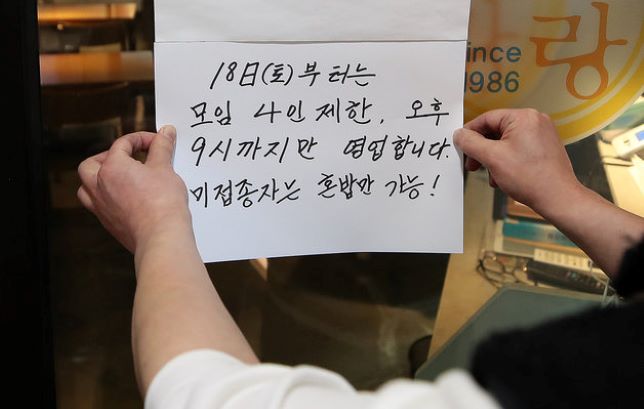 18日(토)부터는
모임 4인 제한, 오후
9시까지만 영업합니다.
미접종자는 혼밥만 가능!
since
1986
랑